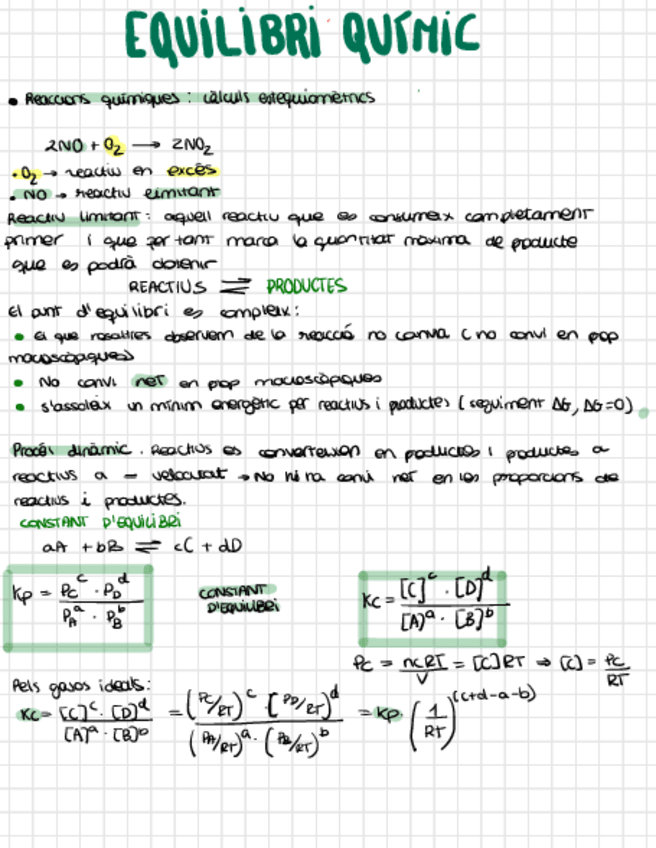 EQUILIBRI QUÍMIC
• Reaccions químiques: càlculs estequiomètrics
2NO + O₂ → 2NO₂
• O₂ → reactiu en excés
• NO → reactiu limitant
Reactiu limitant: aquell reactiu que es consumeix completament
primer i que per tant marca la quantitat màxima de producte
que es podrà obtenir
REACTIUS ⇌ PRODUCTES
El ant d'equilibri es compleix:
• El que nosaltres observem de la reacció no canvia (no canvi en prop
macroscòpiques)
• No canvi net en prop macroscòpiques
• s'assoleix un mínim energètic per reactius i productes (seguiment ΔG, ΔG=0)
Procés dinàmic. Reactius es converteixen en productes i productes a
reactius a = velocitat → No hi ha canvi net en les proporcions de
reactius i productes.
CONSTANT D'EQUILIBRI
aA + bB ⇌ cC + dD
Kp = Pc^c · PD^d / PA^a · PB^b
CONSTANT
D'EQUILIBRI
Kc = [C]^c · [D]^d / [A]^a · [B]^b
Pc = ncRT / V = [C]RT ⇒ [C] = Pc / RT
Pels gasos ideals:
Kc = [C]^c · [D]^d / [A]^a · [B]^b = (Pc/RT)^c · [PD/RT)^d / (PA/RT)^a · (PB/RT)^b = Kp · (1/RT)^(c+d-a-b)